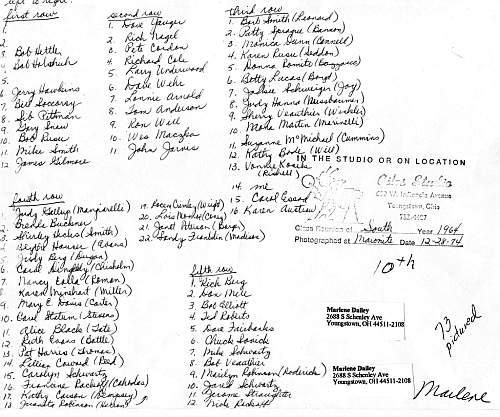 left to right:
first row
1.
2.
3. Bob Hettler
4. Bob Holobruch
5.
6. Jerry Hawkins
7. Bill Socorsy
8. Sib Pittman
9. Gary Snew
10. Bob Rusu
11. Mike Smith
12. James Gilmore
second row
1. Dave Yauger
2. Rick Nagel
3. Pete Cordon
4. Richard Cole
5. Larry Underwood
6. Dave Wehr
7. Lonnie Arnold
8. Tom Anderson
9. Ron Will
10. Wes Macgha
11. John Jarvis
third row
1. Barb Smith (Leonard)
2. Patty Sprague (Benson)
3. Monica Gunn (Connell)
4. Karen Rusu (Seddon)
5. Donna Romito
6. Betty Lucas (Boyd)
7. Jackie Schweiger (Joy)
8. Judy Hannd (Nussbaumer)
9. Sherry Veauthier (Winkler)
10. Maria Martin (Marinelli)
11. Suzanne McMichael (Cummins)
12. Kathy Bode (Will)
13. Vonnie
14. me
15. Carol Essad
16. Karen
IN THE STUDIO OR ON LOCATION
Citas Studio
Youngstown, Ohio
782-4427
Class Reunion of South Year 1964
Photographed at Maronite Date 12-28-74
10th
fourth row
1. Judy Gallup (Mangiarelli)
2. Brenda Buckner
3. Shirley Hicks (Smith)
4. Hauser (Evans)
5. Judy Berg (Dugan)
6. Carol Dingeldy (Chisholm)
7. Nancy Calla (Roman)
8. Karen Mynehart (Miller)
9. Mary E. Davis (Carter)
10. Carol Statum (Stevens)
11. Alice Black (Tate)
12. Ruth Evans (Battle)
13. Pat Harris (Thomas)
14. Lillian Coward (Reed)
15. Carolyn Schwartz
16. Francine
17. Kathy Carson (Dempsey)
18. Juanita Robinson
19. (Wright)
20. Lois Moore (Craig)
21. Janet Peterson
22. Sandy Franklin (Madison)
fifth row
1. Rich Berg
2. Don Mill
3. Bob Elliott
4. Ted Roberts
5. Dave Fairbanks
6. Chuck Sosick
7. Mike Schwartz
8. Bob Veauthier
9. Marilyn Robinson (Roderick)
10. Jared Schwartz
11. Jerome Straughter
12. Nick
Marlene Dailey
2688 S Schenley Ave
Youngstown, OH 44511-2108
Marlene Dailey
2688 S Schenley Ave
Youngstown, OH 44511-2108
73 pictured
Marlene